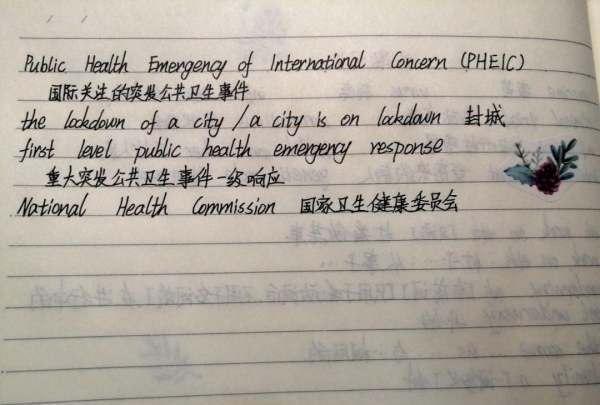 Public Health Emergency of International Concern (PHEIC)
国际关注的突发公共卫生事件
the lockdown of a city / a city is on lockdown 封城
first level public health emergency response
重大突发公共卫生事件一级响应
National Health Commission 国家卫生健康委员会